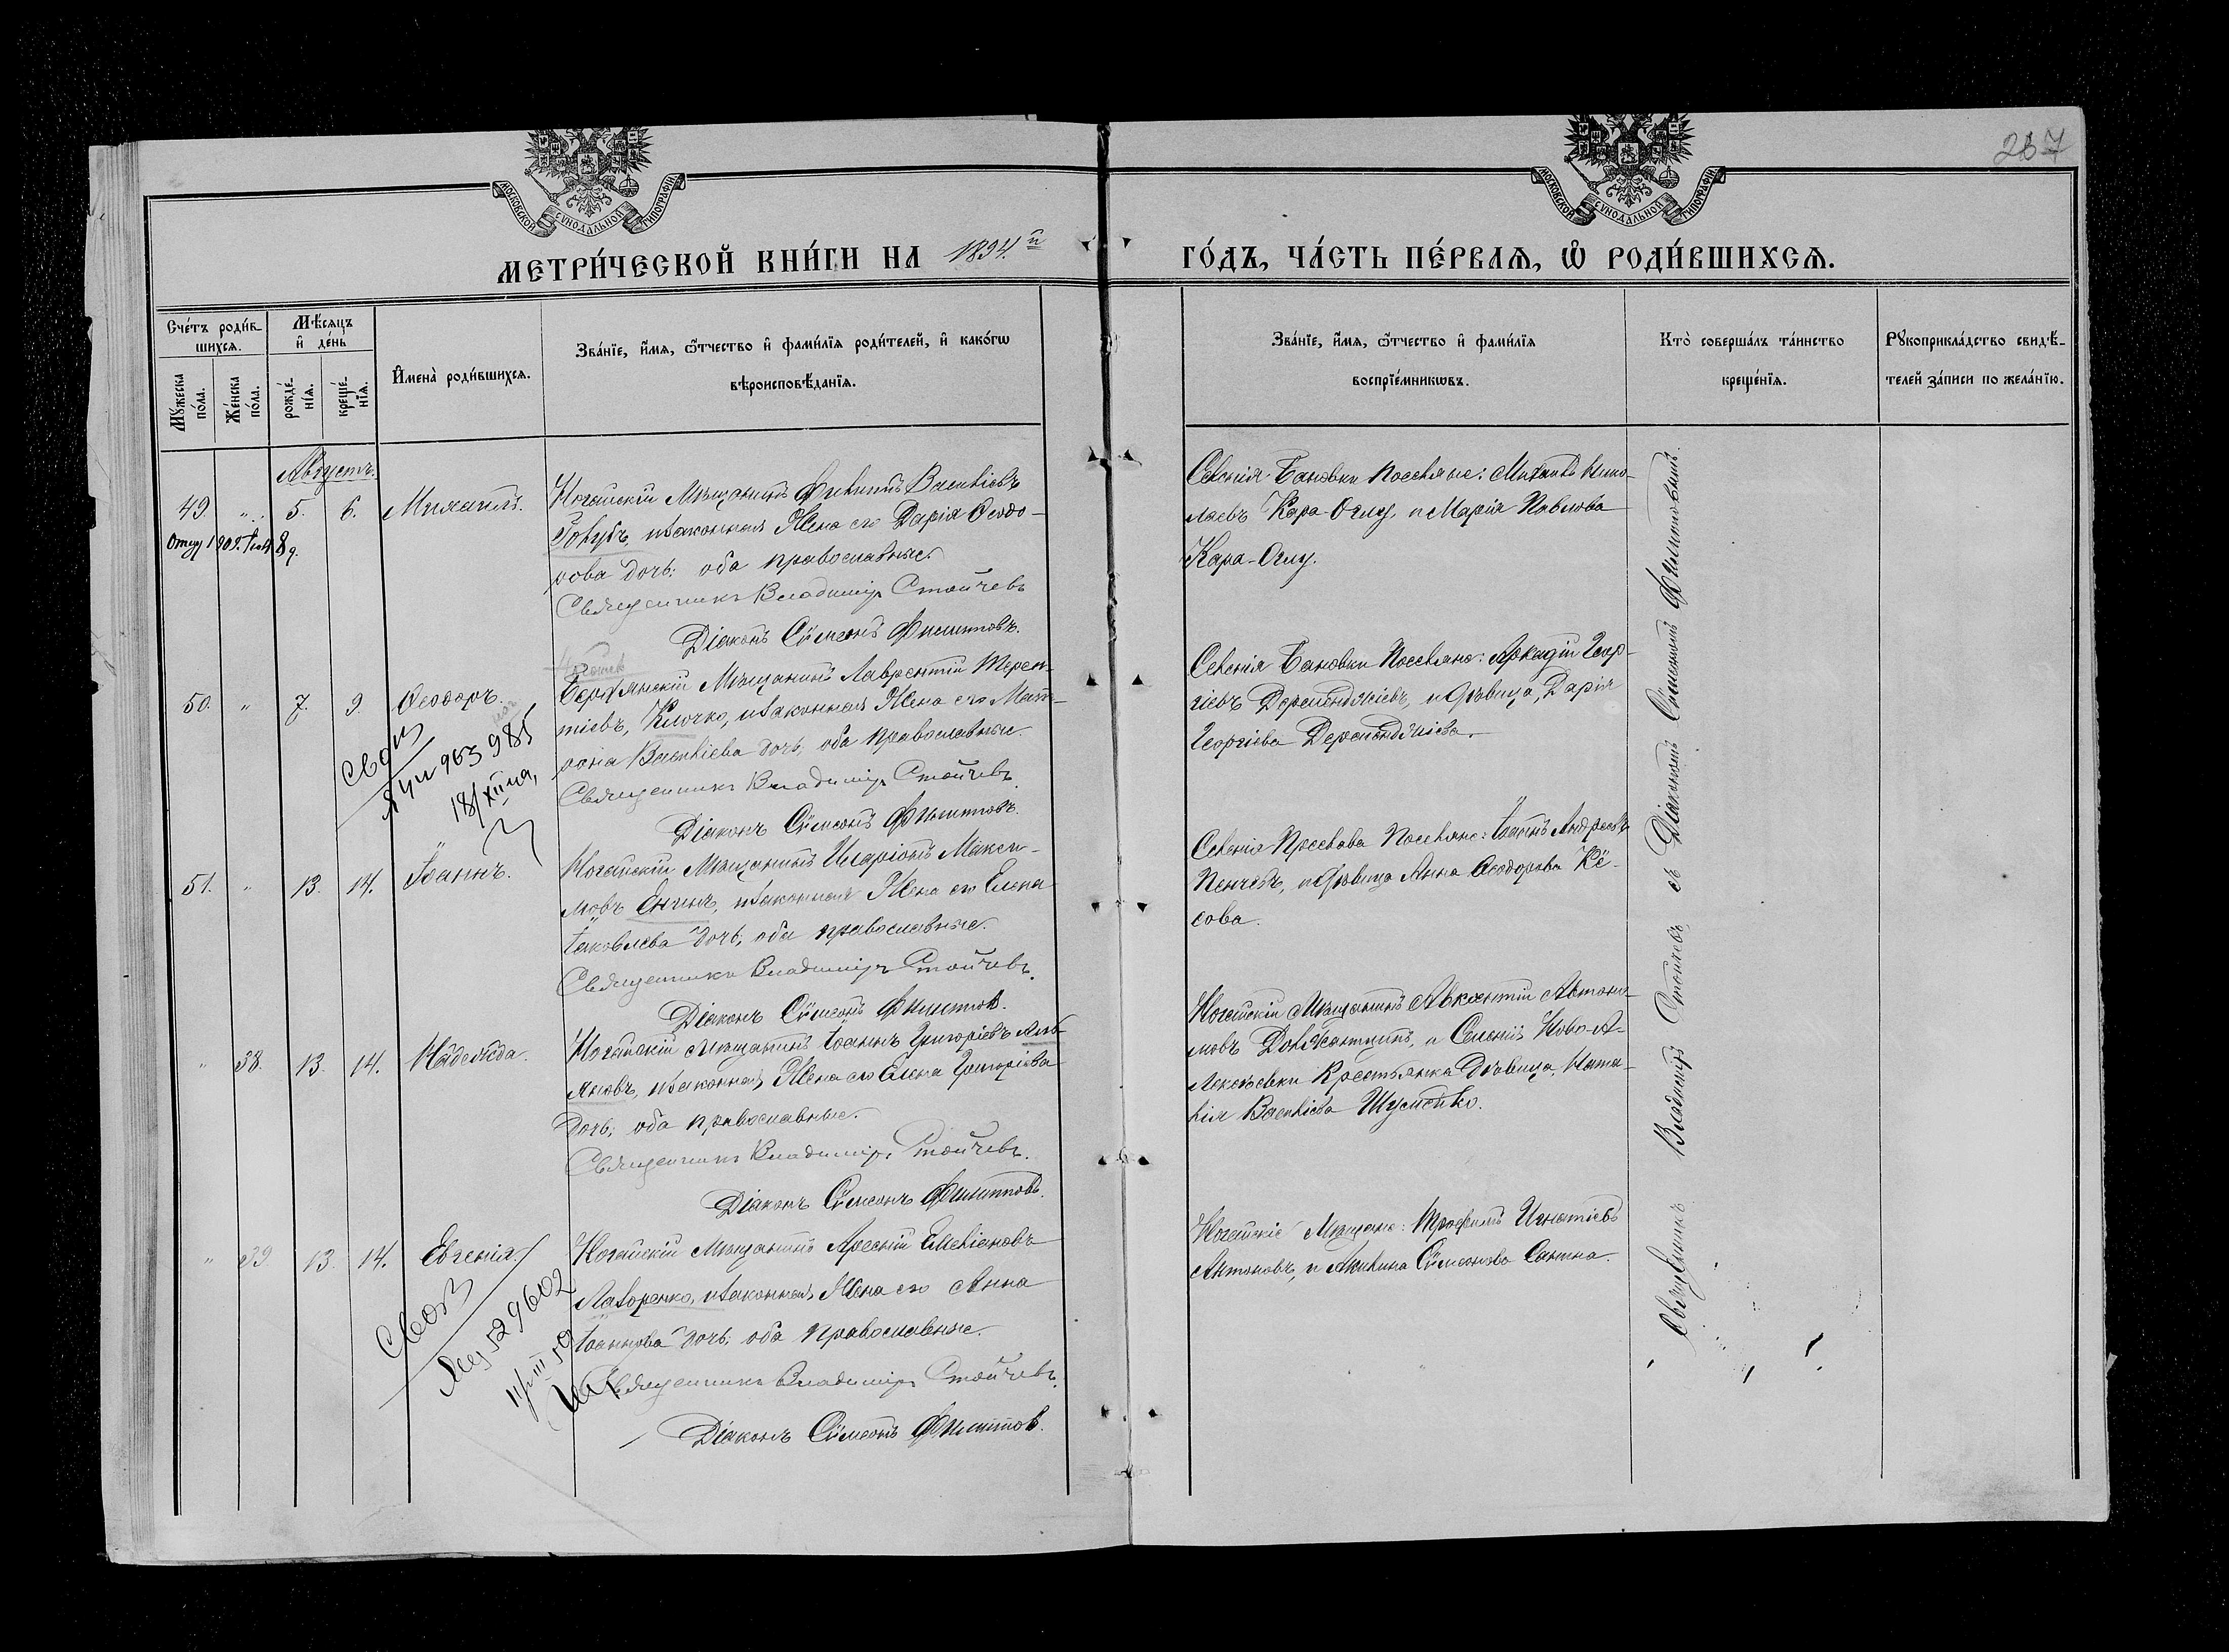 287
МОСКОВСКОЙ СУНОДАЛЬНОЙ ТИПОГРАФІИ
МОСКОВСКОЙ СУНОДАЛЬНОЙ ТИПОГРАФІИ
МЕТРИ́ЧЕСКОЙ КНИ́ГИ НА 1894й ГО́ДЪ, ЧА́СТЬ ПЕ́РВАѦ, Ѡ҆ РОДИ́ВШИХСѦ.
Сче́тъ роди́в-
шихсѧ.
Мꙋ́жеска
по́ла.
Же́нска
по́ла.
Мѣ́сѧцъ
и҆ де́нь
рожде́-
нїѧ.
креще́-
нїѧ.
И҆мена̀ роди́вшихсѧ.
Зва́нїе, и҆́мѧ, ѻ҆́тчество и҆ фами́лїѧ роди́телей, и҆ како́гѡ
вѣроисповѣ́данїѧ.
Зва́нїе, и҆́мѧ, ѻ҆́тчество и҆ фами́лїѧ
воспрїе́мникѡвъ.
Кто̀ соверша́лъ та́инство
креще́нїѧ.
Рꙋкоприкла́дство свидѣ́-
телей за́писи по жела́нїю.
Августъ.
49. " 5. 6. Михаилъ.
Ногайскій Мѣщанинъ Филиппъ Васильевъ
Голубъ, и законная Жена его Дарія Ѳеодо-
рова дочь; оба православные.
Священникъ Владиміръ Стойчевъ
Діаконъ Сѵмеонъ Филипповъ.
Селенія Бановки Поселяне: Михаилъ Нико-
лаевъ Кара-Оглу, и Марія Павлова
Кара-Оглу.
50. " 7. 9. Ѳеодоръ.
Бердянскій Мѣщанинъ Лаврентій Терен-
тіевъ, Клочко, и законная Жена его Мат-
рона Васильева дочь, оба православные.
Священникъ Владиміръ Стойчевъ
Діаконъ Сѵмеонъ Филипповъ.
963985
Селенія Бановки Поселяне: Аркадій Геор-
гіевъ Дерменджіевъ, и дѣвица, Дарія
Георгіева Дерменджіева.
51. " 13. 14. Іоаннъ.
Ногайскій Мѣщанинъ Иларіонъ Макси-
мовъ Енинъ, и законная Жена его Елена
Іаковлева дочь, оба православные.
Священникъ Владиміръ Стойчевъ.
Діаконъ Сѵмеонъ Филиппов.
Селенія Преслава Поселяне: Іоаннъ Андреевъ
Пенчевъ, и дѣвица Анна Ѳеодорова Кё-
сова.
" 38. 13. 14. Надежда.
Ногайскій Мѣщанинъ Іоаннъ Григоріевъ
и законная Жена его Елена Григоріева
дочь; оба православные.
Священникъ Владиміръ Стойчевъ.
Діаконъ Сѵмеонъ Филипповъ.
Ногайскій Мѣщанинъ Авксентій Автоно-
мовъ Должаницинъ, и Селенія Ново-А-
лексѣевки Крестьянка Дѣвица, Ната-
лія Васильева Шуменко.
" 39 13. 14. Евгенія.
Ногайскій Мѣщанинъ Арсеній Емеліановъ
Лазоренко, и законная Жена его Анна
Іоаннова дочь; оба православные.
Священникъ Владиміръ Стойчевъ.
Діаконъ Сѵмеонъ Филиппов.
529602
Ногайскіе Мѣщане: Трофимъ Игнатіевъ
Антоновъ, и Акилина Сѵмеонова Сантна.
Священникъ Владиміръ Стойчевъ съ Діакономъ Сѵмеономъ Филипповымъ.